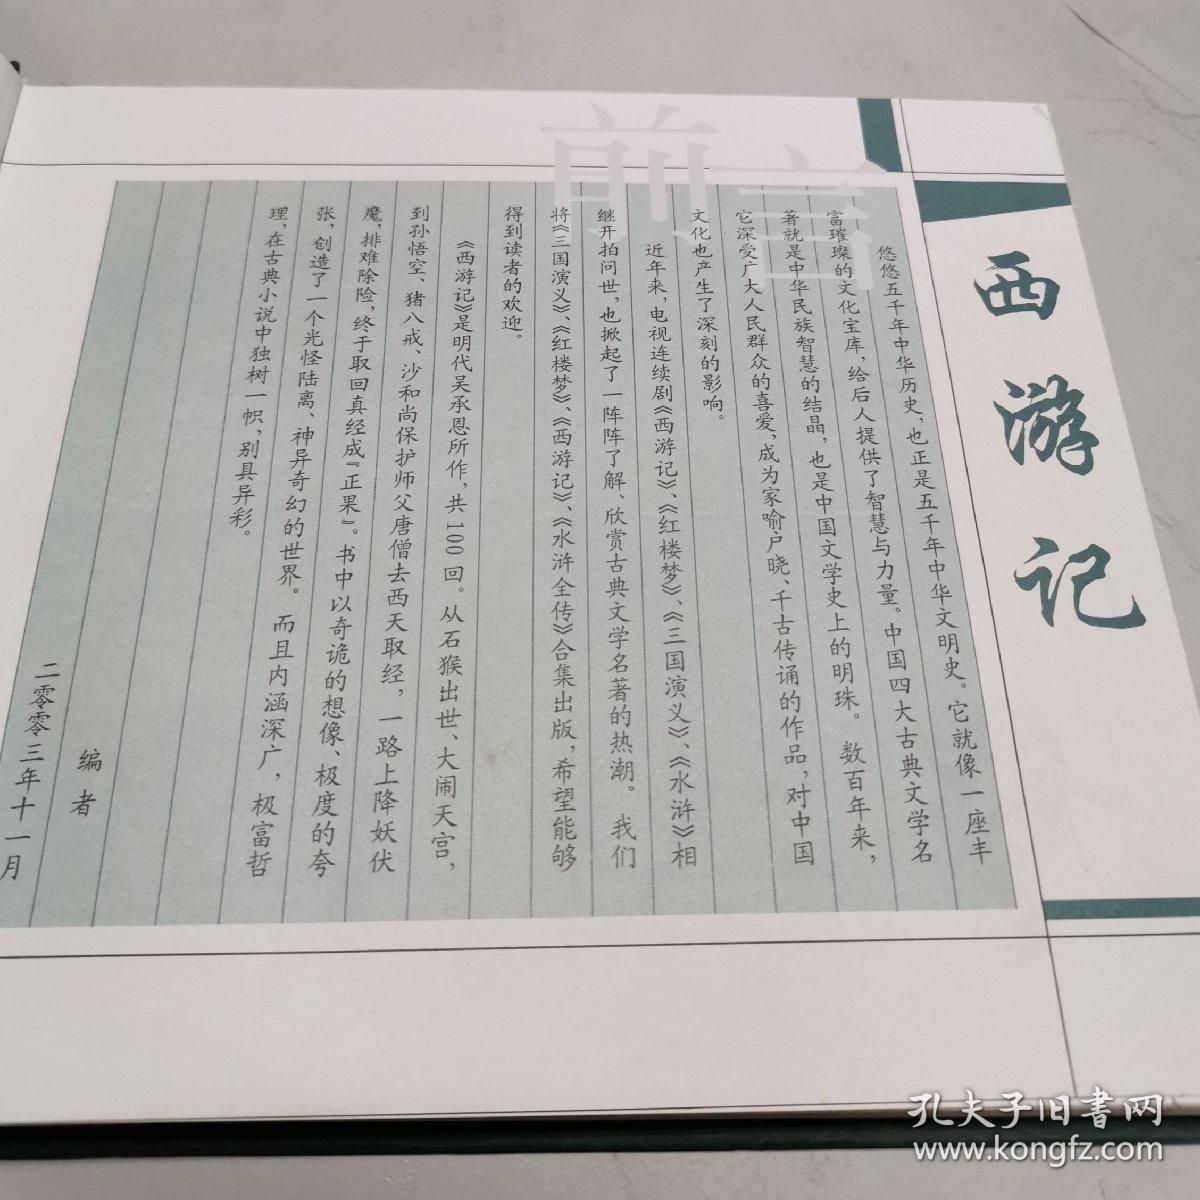 西游记
前言
悠悠五千年中华历史，也正是五千年中华文明史。它就像一座丰
富璀璨的文化宝库，给后人提供了智慧与力量。中国四大古典文学名
著就是中华民族智慧的结晶，也是中国文学史上的明珠。数百年来，
它深受广大人民群众的喜爱，成为家喻户晓、千古传诵的作品，对中国
文化也产生了深刻的影响。
近年来，电视连续剧《西游记》、《红楼梦》、《三国演义》、《水浒》相
继开拍问世，也掀起了一阵阵了解、欣赏古典文学名著的热潮。我们
将《三国演义》、《红楼梦》、《西游记》、《水浒全传》合集出版，希望能够
得到读者的欢迎。
《西游记》是明代吴承恩所作，共100回。从石猴出世、大闹天宫，
到孙悟空、猪八戒、沙和尚保护师父唐僧去西天取经，一路上降妖伏
魔，排难除险，终于取回真经成『正果』。书中以奇诡的想像、极度的夸
张，创造了一个光怪陆离、神异奇幻的世界。而且内涵深广，极富哲
理，在古典小说中独树一帜，别具异彩。
编者
二零零三年十一月
孔夫子旧书网
www.kongfz.com